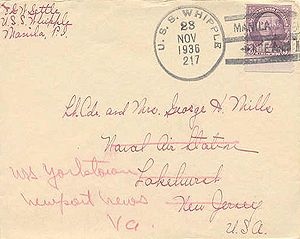 U.S.S. Whipple
Manila, P.I.
U.S.S. WHIPPLE
23
NOV
1936
217
MANILA
Lt. Cdr. and Mrs. George H. Mills
Naval Air Station
Lakehurst
New Jersey
U.S.A.
USS Yorktown
Newport News
Va